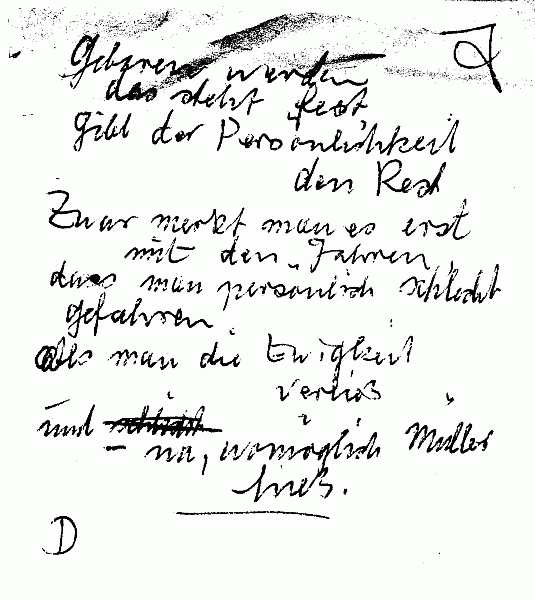 Geboren werden
das steht fest
gibt der Persönlichkeit
den Rest
Zwar merkt man es erst
mit den Jahren,
dass man persönlich schlecht
gefahren
als man die Ewigkeit
verließ
und
– na, womöglich Müller
hieß.
D